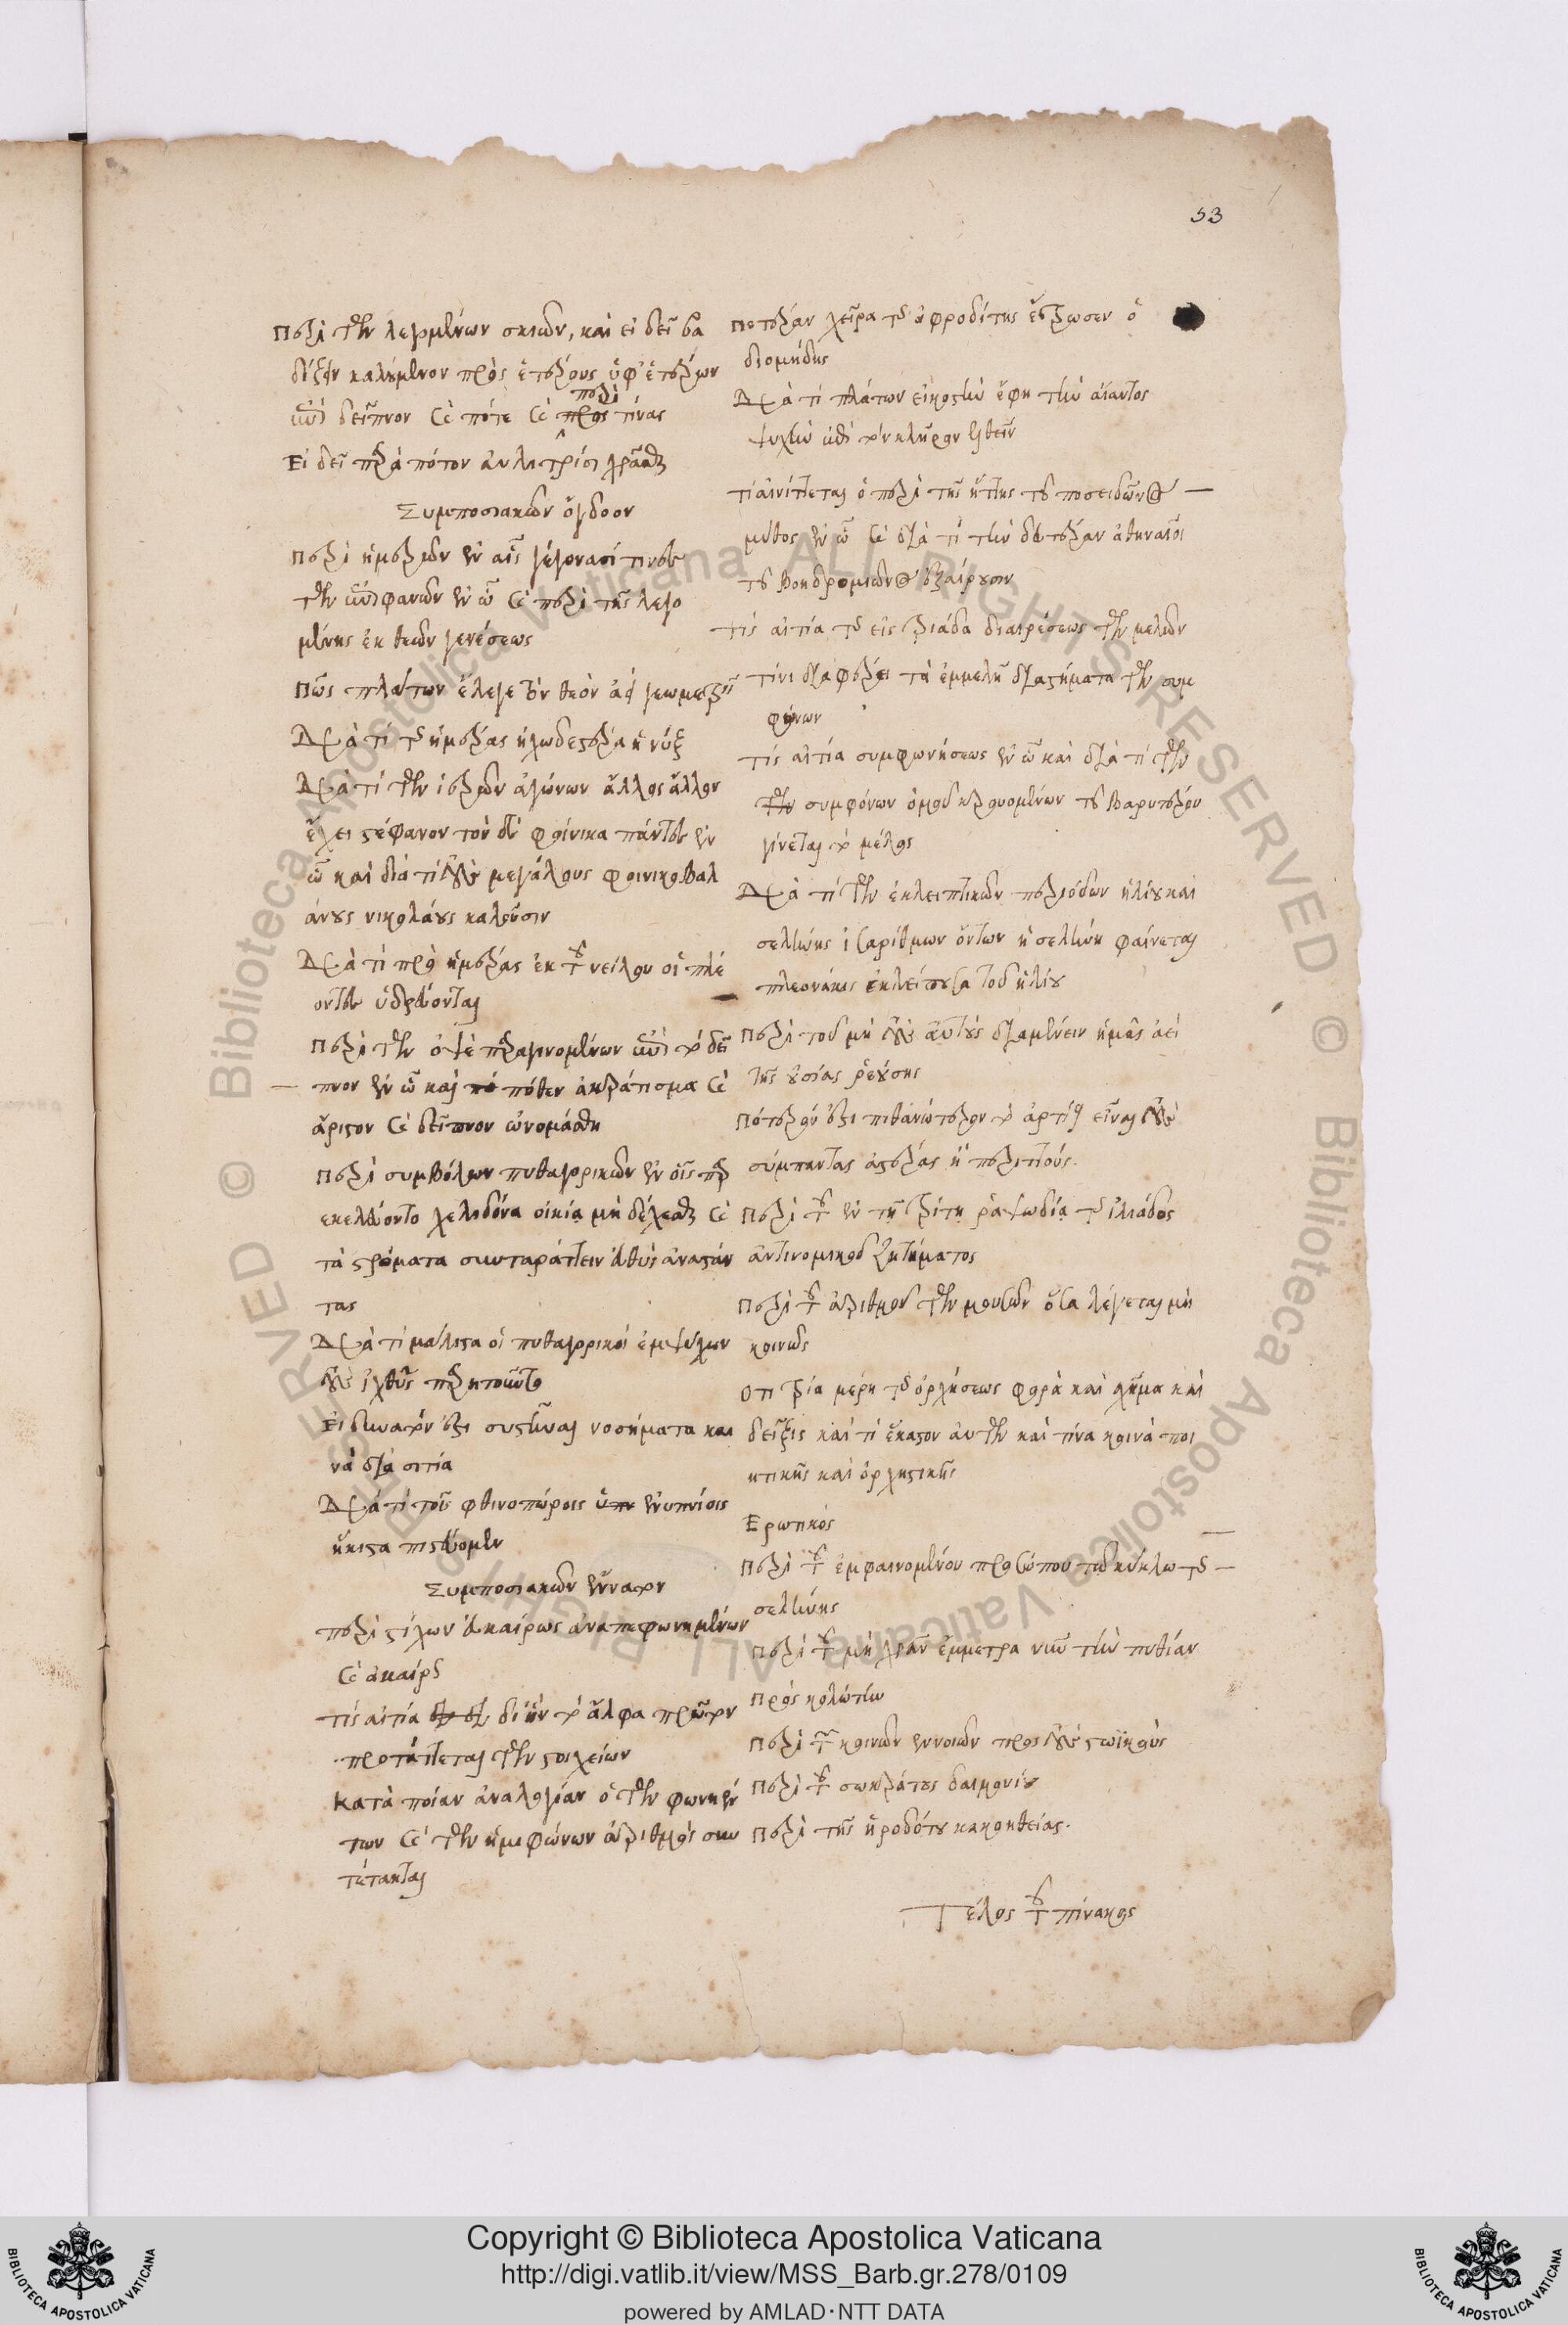 53
Περὶ τῶν λεγομένων σκιῶν, καὶ εἰ δεῖ βα
δίζειν καλούμενον πρὸς ἑτέρους ὑφ' ἑτέρων
ἐπὶ δεῖπνον καὶ πότε καὶ πρὸς τίνας
περὶ
Εἰ δεῖ παρὰ πότον αὐλητρίσι χρῆσθαι
Συμποσιακῶν ὄγδοον
Περὶ ἡμερῶν ἐν αἷς γεγόνασί τινες
τῶν ἐπιφανῶν ἐν ᾧ καὶ περὶ τῆς λεγο
μένης ἐκ θεῶν γενέσεως
Πῶς πλάτων ἔλεγε τὸν θεὸν ἀεὶ γεωμετρεῖν
Διὰ τί τῆς ἡμέρας ἠχωδεστέρα ἡ νύξ
Διὰ τί τῶν ἱερῶν ἀγώνων ἄλλος ἄλλον
ἔχει στέφανον τὸν δὲ φοίνικα πάντες ἐν
ᾧ καὶ διὰ τί τοὺς μεγάλους φοινικοβαλ
άνους νικολάους καλοῦσιν
Διὰ τί πρὸ ἡμέρας ἐκ τοῦ νείλου οἱ πλέ
οντες ὑδρεύονται
Περὶ τῶν ὀψὲ παραγινομένων ἐπὶ τὸ δεῖ
πνον ἐν ᾧ καὶ πό πόθεν ἀκράτισμα καὶ
ἄριστον καὶ δεῖπνον ὠνομάσθη
Περὶ συμβόλων πυθαγορικῶν ἐν οἷς παρ
εκελεύοντο χελιδόνα οἰκίᾳ μὴ δέχεσθαι καὶ
τὰ στρώματα συνταράττειν εὐθὺς ἀναστάν
τας
Διὰ τί μάλιστα οἱ πυθαγορικοί ἐμψύχων
τοὺς ἰχθῦς παρῃτοῦντο
Εἰ δυνατόν ἐστι συστῆναι νοσήματα και
νὰ διὰ σιτία
Διὰ τί τοῖς φθινοπώροις ὑπν ἐνυπνίοις
ἥκιστα πιστεύομεν
Συμποσιακῶν ἔννατον
περὶ στίχων εὐκαίρως ἀναπεφωνημένων
καὶ ἀκαίρως
τίς αἰτία δι' ἣν τὸ ἄλφα πρῶτον
προτάττεται τῶν στοιχείων
Κατὰ ποίαν ἀναλογίαν ὁ τῶν φωνηέν
των καὶ τῶν ἡμιφώνων ἀριθμὸς συν
τέτακται
ποτέραν χεῖρα τῆς ἀφροδίτης ἔτρωσεν ὁ
διομήδης
Διὰ τί πλάτων εἰκοστὴν ἔφη τὴν αἴαντος
ψυχὴν ἐπὶ τὸν κλῆρον ἐλθεῖν
τί αἰνίττεται ὁ περὶ τῆς ἥττης τοῦ ποσειδῶνος
μῦθος ἐν ᾧ καὶ διὰ τί τὴν δευτέραν ἀθηναῖοι
τοῦ βοηδρομιῶνος ἐξαίρουσιν
τίς αἰτία τῆς εἰς τριάδα διαιρέσεως τῶν μελῶν
τίνι διαφέρει τὰ ἐμμελῆ διαστήματα τῶν συμ
φώνων
τίς αἰτία συμφωνήσεως ἐν ᾧ καὶ διὰ τί τῶν
τῶν συμφώνων ὁμοῦ κρουομένων τοῦ βαρυτέρου
γίνεται τὸ μέλος
Διὰ τί τῶν ἐκλειπτικῶν περιόδων ἡλίου καὶ
σελήνης ἰσαρίθμων ὄντων ἡ σελήνη φαίνεται
πλεονάκις ἐκλείπουσα τοῦ ἡλίου
Περὶ τοῦ μὴ τοὺς αὐτοὺς διαμένειν ἡμᾶς ἀεὶ
τῆς οὐσίας ῥεούσης
Πότερόν ἐστι πιθανώτερον τὸ ἀρτίους εἶναι τοὺς
σύμπαντας ἀστέρας ἢ περιττούς.
Περὶ τοῦ ἐν τῇ τρίτῃ ῥαψῳδίᾳ τῆς ἰλιάδος
ἀντινομικοῦ ζητήματος
Περὶ τοῦ ἀριθμοῦ τῶν μουσῶν ὅσα λέγεται μὴ
κοινῶς
Ὅτι τρία μέρη τῆς ὀρχήσεως φορὰ καὶ σχῆμα καὶ
δεῖξις καὶ τί ἕκαστον αὐτῶν καὶ τίνα κοινὰ ποι
ητικῆς καὶ ὀρχηστικῆς
Ερωτικός
Περὶ τοῦ ἐμφαινομένου προσώπου τῷ κύκλῳ τῆς
σελήνης
Περὶ τοῦ μὴ χρᾶν ἔμμετρα νῦν τὴν πυθίαν
Πρὸς κολώτην
Περὶ τῶν κοινῶν ἐννοιῶν πρὸς τοὺς στωϊκοὺς
Περὶ τοῦ σωκράτους δαιμονίου
Περὶ τῆς ἡροδότου κακοηθείας.
Τέλος τοῦ πίνακος
© Biblioteca Apostolica Vaticana ALL RIGHTS RESERVED
© Biblioteca Apostolica Vaticana ALL RIGHTS RESERVED
Copyright © Biblioteca Apostolica Vaticana
http://digi.vatlib.it/view/MSS_Barb.gr.278/0109
powered by AMLAD·NTT DATA
BIBLIOTECA APOSTOLICA VATICANA
BIBLIOTECA APOSTOLICA VATICANA